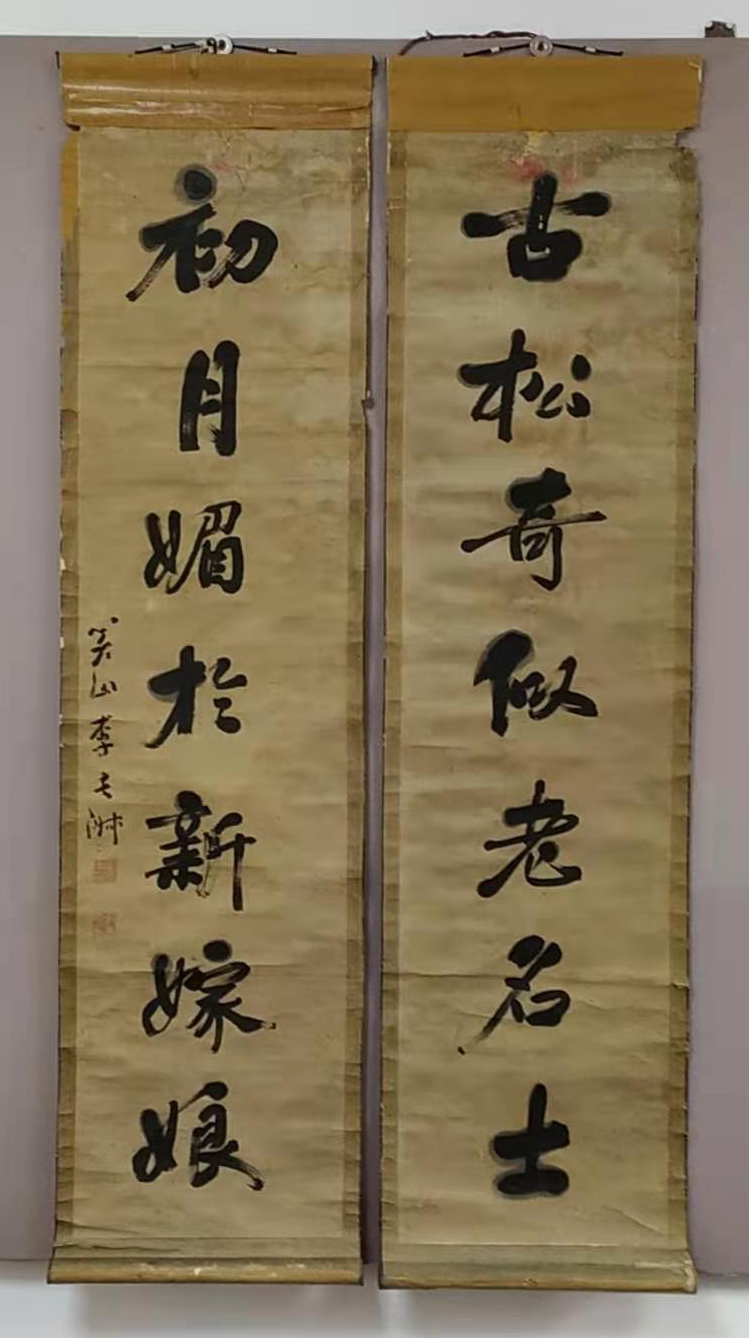 古松奇似老名士
初月媚於新嫁娘
笑山李